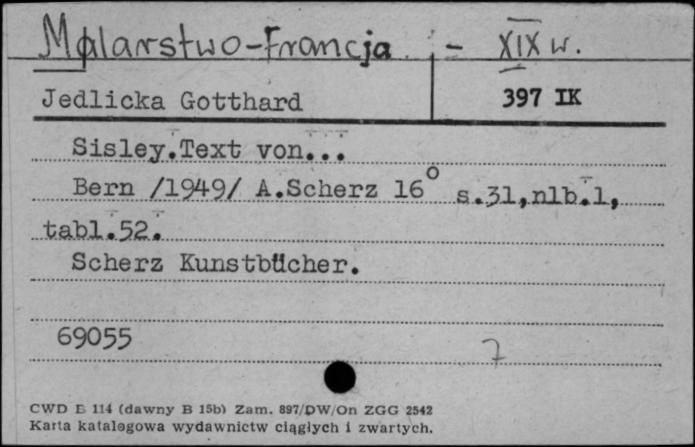 Malarstwo - Francja - XIX w.
Jedlicka Gotthard 397 IK
Sisley.Text von...
Bern /1949/ A.Scherz 16° s.31,nlb.1,
tabl.52.
Scherz Kunstbücher.
69055 7
CWD E 114 (dawny B 15b) Zam. 897/DW/On ZGG 2542
Karta katalogowa wydawnictw ciągłych i zwartych.